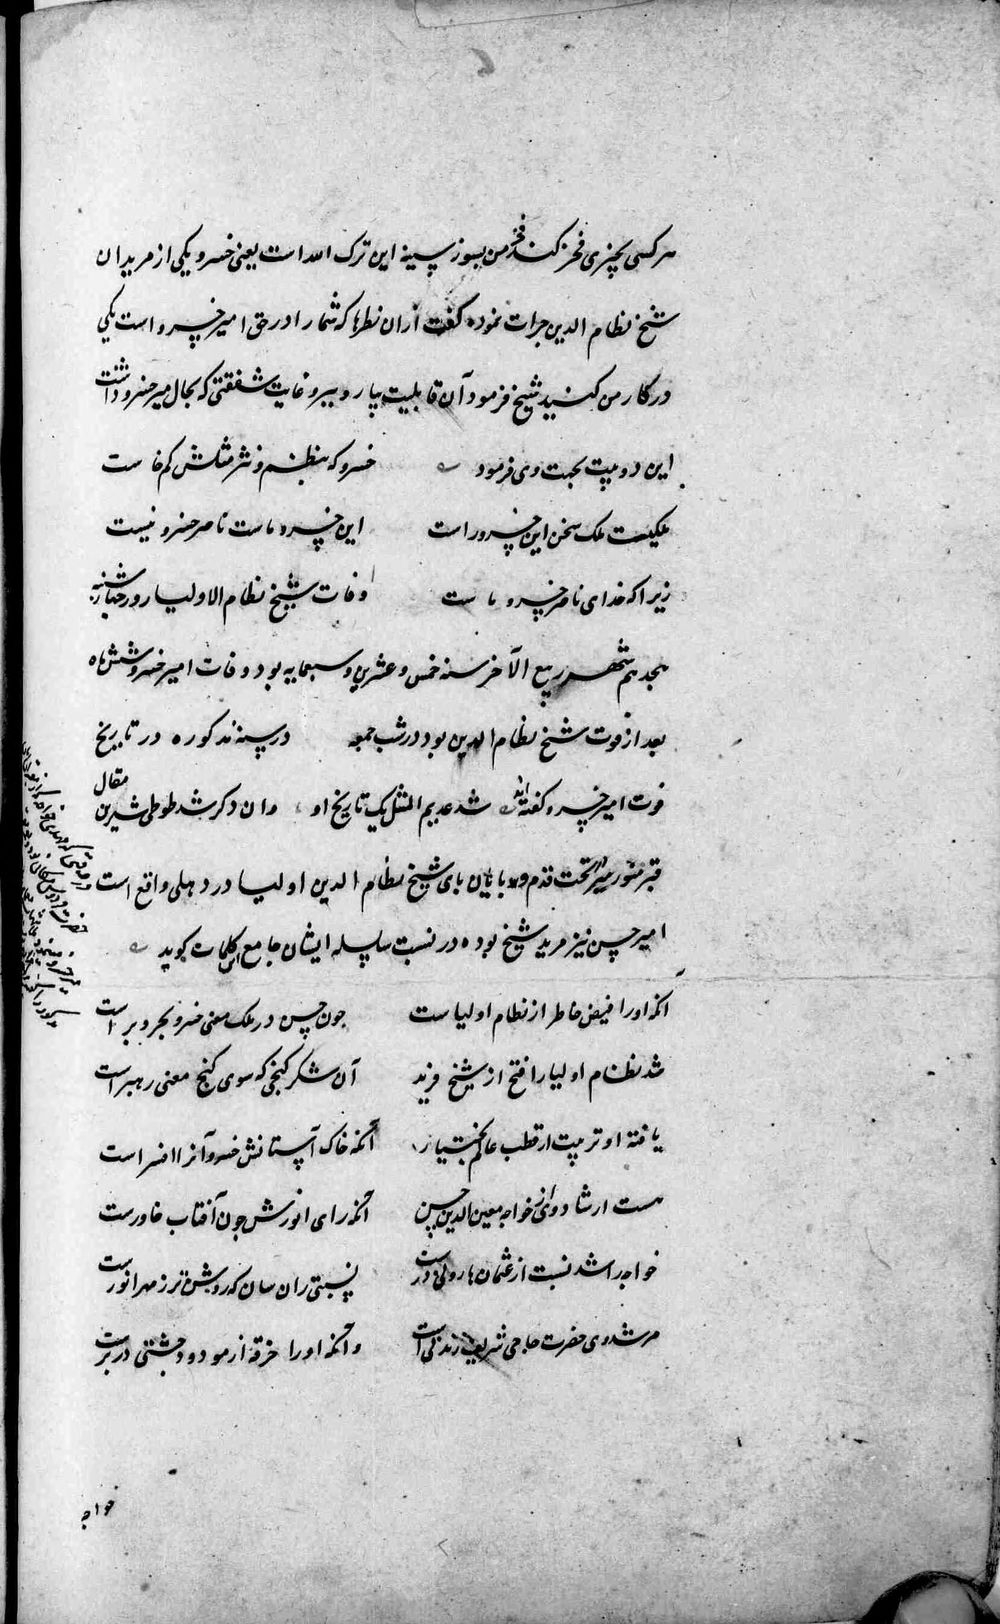 هر کسی بچیزی فخر کند فخر من بسوز سینه این ترک الله است یعنی خسرو یکی از مریدان
شیخ نظام الدین جرات نموده گفت ازان نظرها که شما را در حق امیر خسرو است یکی
در کار من کنید شیخ فرمود آن قابلیت بیار و ببر و غایت شفقتی که بحال میر خسرو داشت
این دو بیت بجهت وی فرمود خسرو که بنظم و نثر مثلش کم خاست
ملکیست ملک سخن این خسرو راست این خسرو ماست ناصر خسرو نیست
زیرا که خدای ناصر خسرو ماست وفات شیخ نظام الاولیا روز چهارشنبه
هجدهم شهر ربیع الآخر سنه خمس و عشرین و سبعمایه بود وفات امیر خسرو شش ماه
بعد از فوت شیخ نظام الدین بود در شب جمعه در سنه مذکوره در تاریخ
فوت امیر خسرو گفته اند شد عدیم المثل یک تاریخ او وان دگر شد طوطی شیرین مقال
قبر منور میر تحت قدم ولا پایان پای شیخ نظام الدین اولیا در دهلی واقع است
امیر حسن نیز مرید شیخ بوده در نسبت سلسله ایشان جامع این کلمات گوید
آنکه او را فیض خاطر از نظام اولیاست چون حسن در ملک معنی خسرو بحر و بر است
شد نظام اولیا را فتح از شیخ فرید آن شکر گنجی که سوی گنج معنی رهبر است
یافته او تربیت از قطب عالم بختیار آنکه خاک آستانش خسروانرا افسر است
هست ارشاد وی از خواجه معین الدین حسن آنکه رای انورش چون آفتاب خاورست
خواجه را شد نسبت از عثمان هارونی درست نسبتی زان سان که روشن تر ز مهر انورست
مرشد وی حضرت حاجی شریف زندنی است وآنکه او را خرقه از مودود چشتی در برست
خواجه